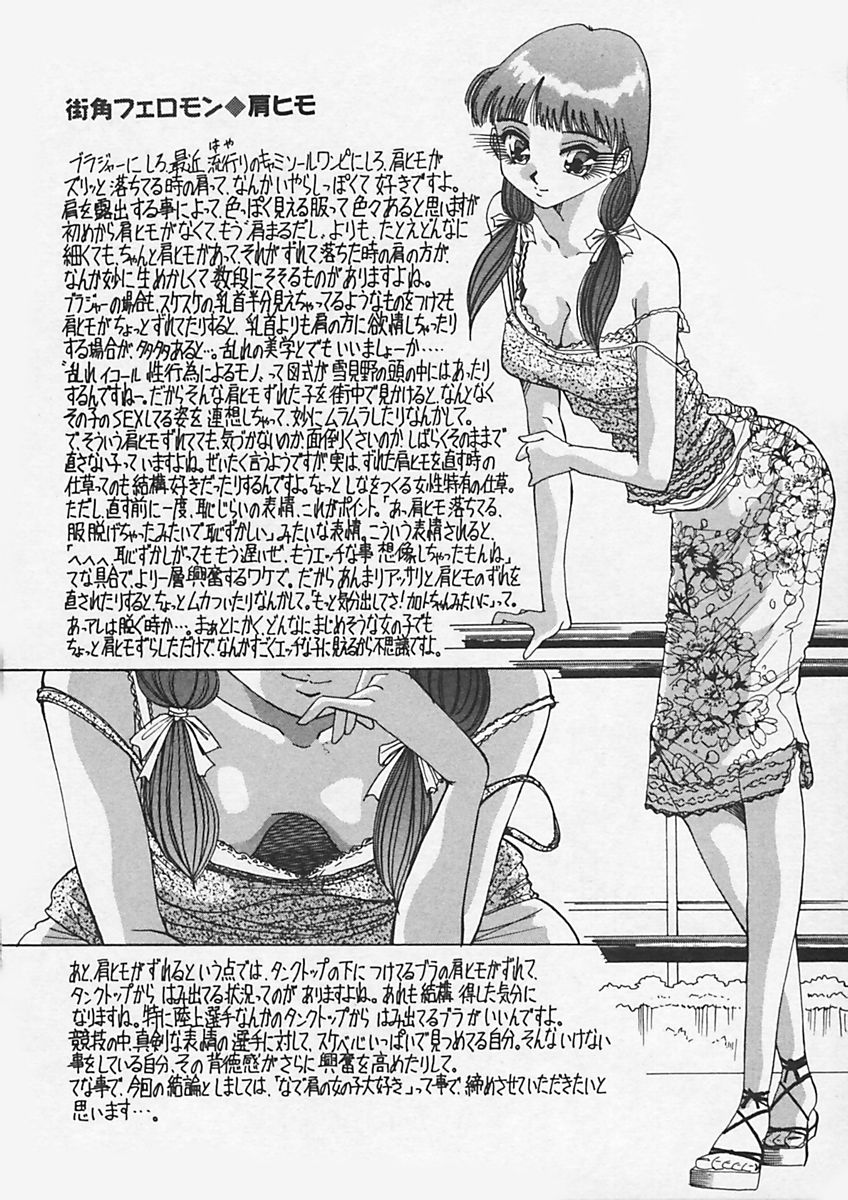 街角フェロモン◆肩ヒモ
ブラジャーにしろ、最近流行りのキャミソールワンピにしろ、肩ヒモが
はや
ズリッと落ちてる時の肩って、なんかいやらしっぽくて好きですよ。
肩を露出する事によって、色っぽく見える服って色々あると思いますが
初めから肩ヒモがなくて、もう“肩まるだし”よりも、たとえどんなに
細くても、ちゃんと肩ヒモがあって、それがずれて落ちた時の肩の方が、
なんか妙に生めかしくて数段にそそるものがありますよね。
ブラジャーの場合も、スケスケの、乳首半分見えちゃってるようなものをつけても
肩ヒモがちょっとずれてたりすると、乳首よりも肩の方に欲情しちゃったり
する場合が多々あると…。乱れの美学とでもいいましょーか‥‥
“乱れイコール性行為によるモノ”って図式が雪見野の頭の中にはあったり
するんですねー。だからそんな肩ヒモずれた子を街中で見かけると、なんとなく
その子のSEXしてる姿を連想しちゃって、妙にムラムラしたりなんかして。
で、そういう肩ヒモずれてても、気づかないのか、面倒りくさいのか、しばらくそのままで
直さない子っていますよね。ぜいたく言うようですが実は、ずれた肩ヒモを直す時の
仕草ってのも結構好きだったりするんですよ。ちょっとしなをつくる女性特有の仕草。
ただし、直す前に一度、恥じらいの表情、これがポイント。「あっ、肩ヒモ落ちてる、
服脱げちゃったみたいで恥ずかしい」みたいな表情。こういう表情されると、
「へへへ、恥ずかしがってももう遅いぜ、もうエッチな事想像しちゃったもんね」
てな具合でより一層興奮するワケで。だからあんまりアッサリと肩ヒモのずれを
直されたりすると、ちょっとムカついたりなんかして。“もっと気分出してさ!加トちゃんみたいに”って。
あーアレは脱ぐ時か…。まぁとにかくどんなにまじめそうな女の子でも
ちょっと肩ヒモずらしただけで、なんかすごくエッチな子に見えるから不思議ですよ。
あと、肩ヒモがずれるという点では、タンクトップの下につけてるブラの肩ヒモがずれて、
タンクトップからはみ出てる状況ってのがありますよね。あれも結構得した気分に
なりますね。特に陸上選手なんかのタンクトップからはみ出てるブラがいいんですよ。
競技の中、真剣な表情の選手に対して、スケベ心いっぱいで見つめてる自分。そんないけない
事をしている自分、その背徳感がさらに興奮を高めたりして。
てな事で、今回の結論としましては、「なで肩の女の子大好き」って事で、締めさせていただきたいと
思います…。